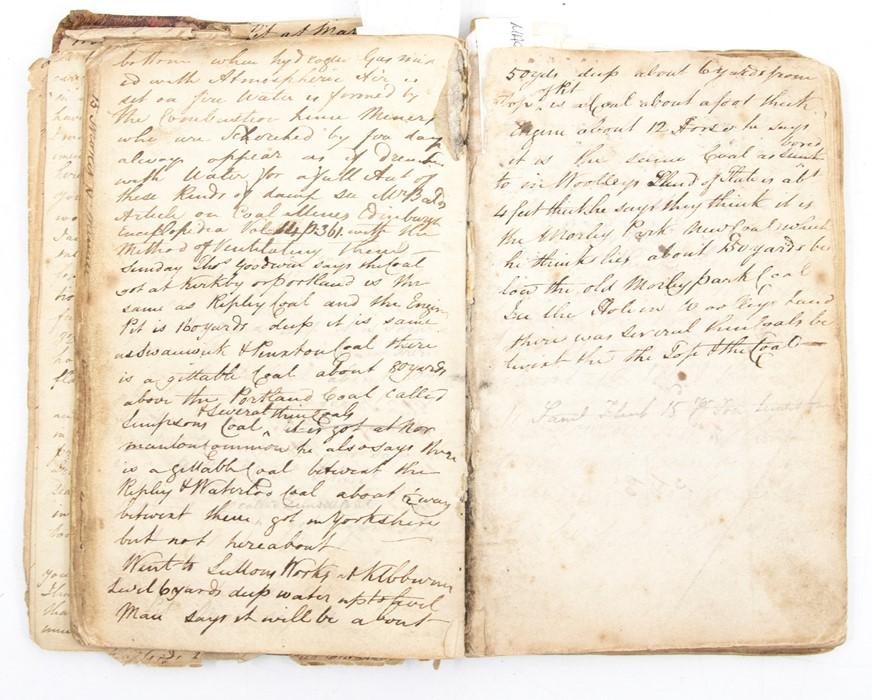 Pit at Mar
bottom when hydrogen Gas mix
ed with Atmospheric Air is
set on fire Water is formed by
the Combustion hence Miners
who are Schorched by foo day
always appear as if drench
with Water for a full Act of
these Kinds of damp see Mr Balds
Article on Coal Mines Edinburgh
Encyclopedia Vol 14 P 361 with the
Method of Ventilating them
Sunday Thos Goodwin says the Coal
got at Kirkby or Portland is the
same as Ripley Coal and the Engin
Pit is 160 yards deep it is same
as Swanwick & Pinxton Coal there
is a gittable Coal about 80 yards
above the Portland Coal called
& Several thin Coals
Simpsons Coal, it is got at Nor
manton Common he also says there
is a gittable Coal betwixt the
Ripley & Waterloo Coal about ½ way
betwixt them got in Yorkshire
but not hereabout
Went to Works at Kilbourn
Level 6 yards deep water up to level
Man says it will be about
50 yds deep about 6 yards from
Top is a Coal about a foot thick
Engine about 12 Horse he says
it is the same Coal as
bored
to in Woolleys Land & that is abt
4 feet thick he says they think it is
the Morley Park New Coal which
he thinks lies about 150 yards be
low the old Morley park Coal
See the Holes in Land
there was several thin Coals be
twixt the Top & the Coal